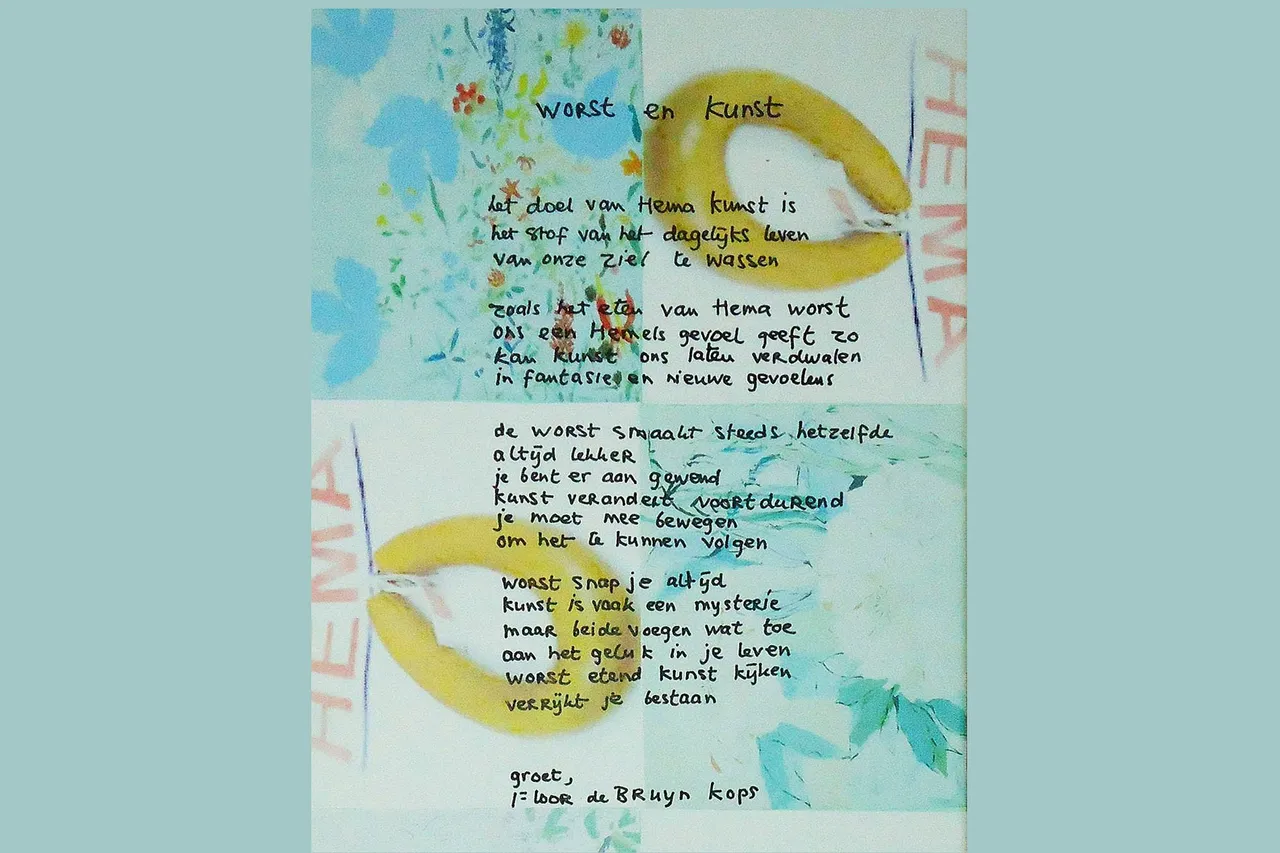 WORST en kunst
het doel van Hema kunst is
het stof van het dagelijks leven
van onze ziel te wassen
zoals het eten van Hema worst
ons een Hemels gevoel geeft zo
kan kunst ons laten verdwalen
in fantasie en nieuwe gevoelens
de WORST smaakt steeds hetzelfde
altijd lekker
je bent er aan gewend
kunst verandert voortdurend
je moet mee bewegen
om het te kunnen volgen
WORST snap je altijd
kunst is vaak een mysterie
maar beide voegen wat toe
aan het geluk in je leven
WORST etend kunst kijken
verrijkt je bestaan
groet,
Floor de Bruyn Kops
HEMA
HEMA